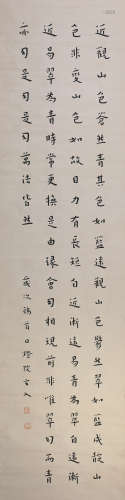 近觀山色蒼然青其色如藍遠觀山色鬱然翠如藍成靛山
色非變山色如故目力有長短自近漸遠易青為翠自遠漸
近易翠為青時常更換是由緣會幻相現前非唯翠幻而青
亦幻是幻是幻萬法皆然
歲次